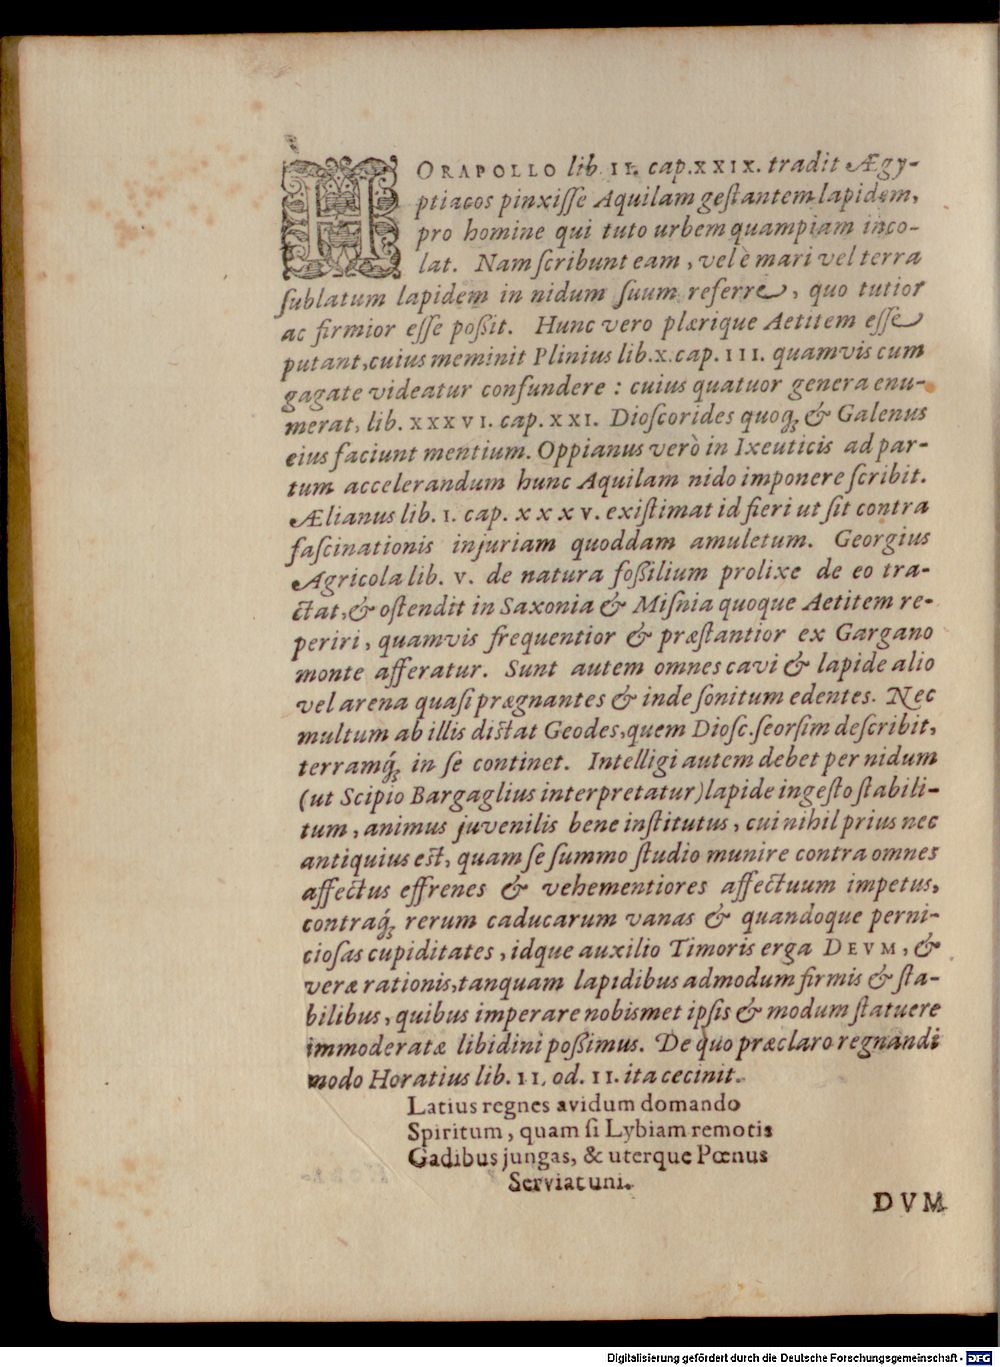 HORAPOLLO lib. II. cap. XXIX. tradit Ægy-
ptiacos pinxisse Aquilam gestantem lapidem,
pro homine qui tuto urbem quampiam inco-
lat. Nam scribunt eam, vel è mari vel terra
sublatum lapidem in nidum suum referre, quo tutior
ac firmior esse poßit. Hunc vero plærique Aetitem esse
putant, cuius meminit Plinius lib. X. cap. III. quamvis cum
gagate videatur confundere : cuius quatuor genera enu-
merat, lib. XXXVI. cap. XXI. Dioscorides quoq; & Galenus
eius faciunt mentium. Oppianus verò in Ixeuticis ad par-
tum accelerandum hunc Aquilam nido imponere scribit.
Ælianus lib. I. cap. XXXV. existimat id fieri ut sit contra
fascinationis injuriam quoddam amuletum. Georgius
Agricola lib. V. de natura foßilium prolixe de eo tra-
ctat, & ostendit in Saxonia & Misnia quoque Aetitem re-
periri, quamvis frequentior & præstantior ex Gargano
monte afferatur. Sunt autem omnes cavi & lapide alio
vel arena quasi prægnantes & inde sonitum edentes. Nec
multum ab illis distat Geodes, quem Diosc. seorsim describit,
terramq́; in se continet. Intelligi autem debet per nidum
(ut Scipio Bargaglius interpretatur) lapide ingesto stabili-
tum, animus juvenilis bene institutus, cui nihil prius nec
antiquius est, quam se summo studio munire contra omnes
affectus effrenes & vehementiores affectuum impetus,
contraq́; rerum caducarum vanas & quandoque perni-
ciosas cupiditates, idque auxilio Timoris erga DEVM, &
veræ rationis, tanquam lapidibus admodum firmis & sta-
bilibus, quibus imperare nobismet ipsis & modum statuere
immoderatæ libidini poßimus. De quo præclaro regnandi
modo Horatius lib. II. od. II. ita cecinit.
Latius regnes avidum domando
Spiritum, quam si Lybiam remotis
Gadibus jungas, & uterque Pœnus
Serviat uni.
DVM
Digitalisierung gefördert durch die Deutsche Forschungsgemeinschaft - DFG